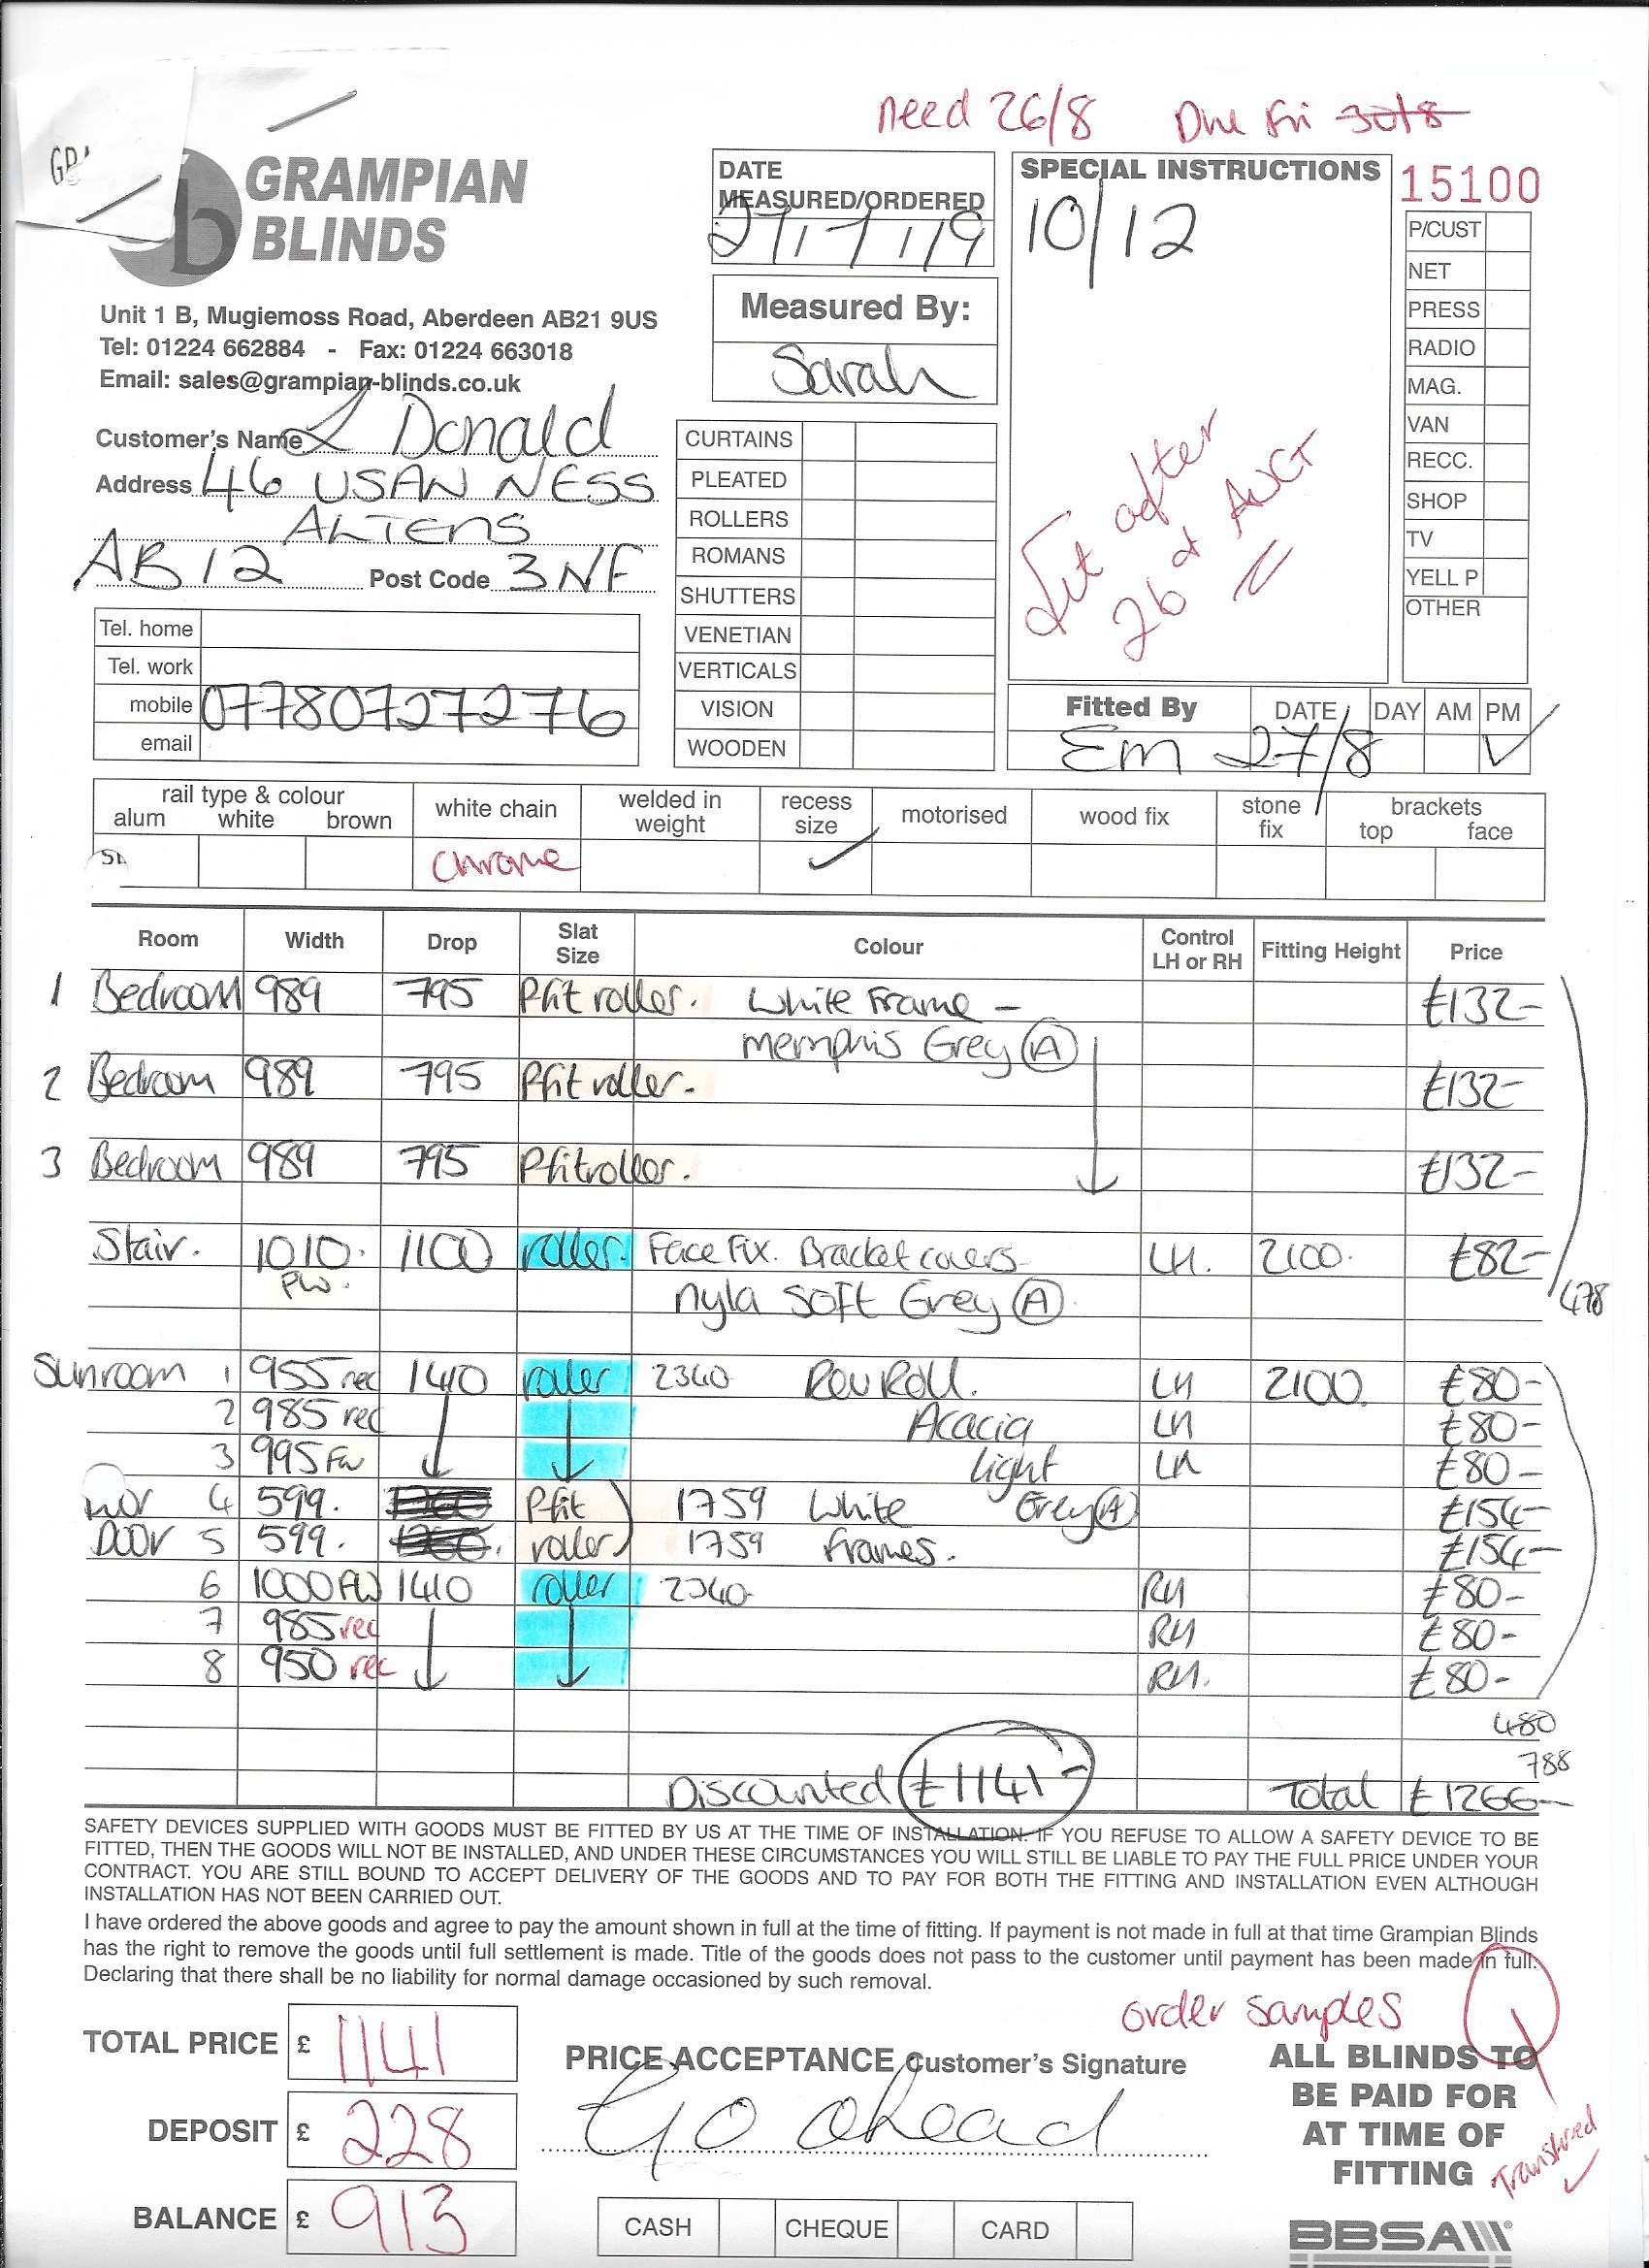 need 26/8 Due Fri 30/8
GRAMPIAN
BLINDS
Unit 1 B, Mugiemoss Road, Aberdeen AB21 9US
Tel: 01224 662884 - Fax: 01224 663018
Email: sales@grampian-blinds.co.uk
DATE
MEASURED/ORDERED
27/7/19
Measured By:
Sarah
SPECIAL INSTRUCTIONS
10/12
after
26 AUGT
15100
P/CUST
NET
PRESS
RADIO
MAG.
VAN
RECC.
SHOP
TV
YELL P
OTHER
Customer's Name L Donald
Address 46 USAN NESS
ALTENS
AB12 Post Code 3NF
Tel. home
Tel. work
mobile 07780727276
email
CURTAINS
PLEATED
ROLLERS
ROMANS
SHUTTERS
VENETIAN
VERTICALS
VISION
WOODEN
Fitted By DATE DAY AM PM
EM 27/8
rail type & colour
alum white brown
white chain
welded in weight
recess size
motorised
wood fix
stone fix
brackets
top face
Chrome
Room Width Drop Slat Size Colour Control LH or RH Fitting Height Price
1 Bedroom 989 795 Pfit roller. White Frame - £132-
Memphis Grey (A)
2 Bedroom 989 795 Pfit roller. £132-
3 Bedroom 989 795 Pfit roller. £132-
Stair. 1010. 1100 roller. Face Fix. Bracket covers LH. 2100. £82-
PW. Nyla Soft Grey (A) 478
Sunroom 1 955 rec 1410 roller 2340 Rev Roll. LH 2100 £80-
2 985 rec Acacia LH £80-
3 995 FW light LH £80-
4 599. Pfit 1759 White Grey (A) £154-
Door 5 599. roller 1759 Frames. £154-
6 1000 FW 1410 roller 2340 RH £80-
7 985 rec RH £80-
8 950 rec RH. £80-
480
788
Discounted £1141- Total £1266-
SAFETY DEVICES SUPPLIED WITH GOODS MUST BE FITTED BY US AT THE TIME OF INSTALLATION. IF YOU REFUSE TO ALLOW A SAFETY DEVICE TO BE
FITTED, THEN THE GOODS WILL NOT BE INSTALLED, AND UNDER THESE CIRCUMSTANCES YOU WILL STILL BE LIABLE TO PAY THE FULL PRICE UNDER YOUR
CONTRACT. YOU ARE STILL BOUND TO ACCEPT DELIVERY OF THE GOODS AND TO PAY FOR BOTH THE FITTING AND INSTALLATION EVEN ALTHOUGH
INSTALLATION HAS NOT BEEN CARRIED OUT.
I have ordered the above goods and agree to pay the amount shown in full at the time of fitting. If payment is not made in full at that time Grampian Blinds
has the right to remove the goods until full settlement is made. Title of the goods does not pass to the customer until payment has been made in full.
Declaring that there shall be no liability for normal damage occasioned by such removal.
order samples
TOTAL PRICE £ 1141
DEPOSIT £ 228
BALANCE £ 913
PRICE ACCEPTANCE Customer's Signature
Go ahead
CASH CHEQUE CARD
ALL BLINDS TO
BE PAID FOR
AT TIME OF
FITTING
Transfered
BBSA